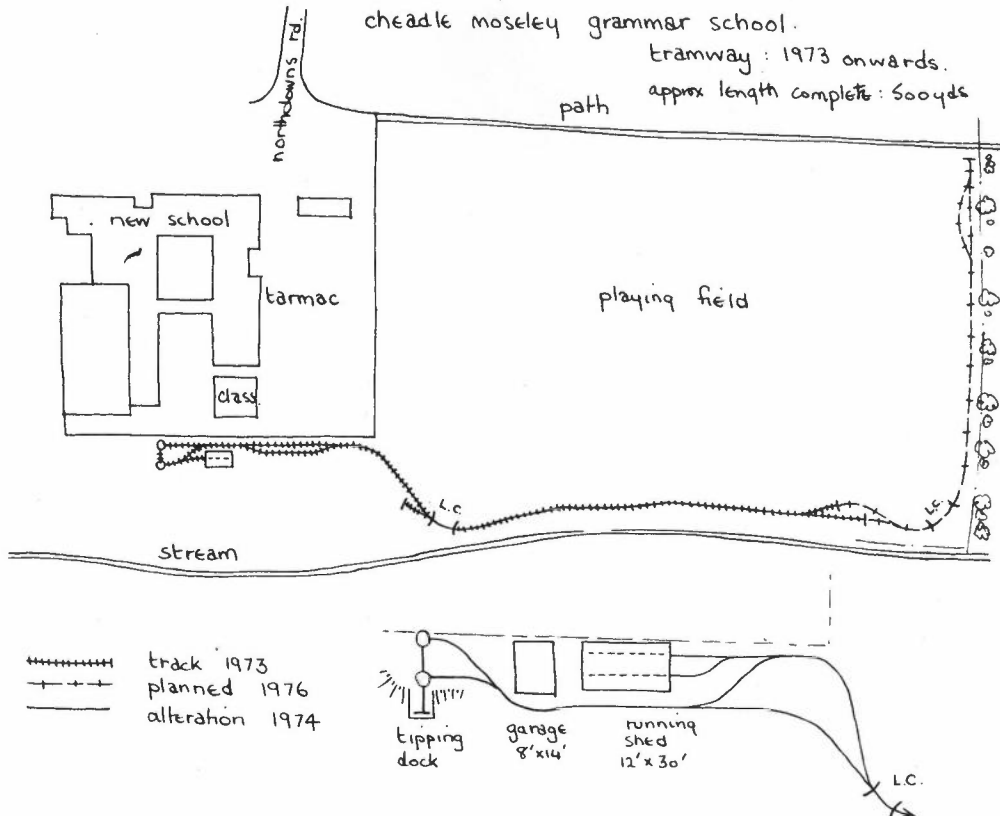 cheadle moseley grammar school.
tramway : 1973 onwards.
approx length complete : 500yds
northdowns rd.
path
new school
tarmac
playing field
class
L.C.
L.C.
stream
track 1973
planned 1976
alteration 1974
tipping
dock
garage
8'x14'
running
shed
12' x 30'
L.C.